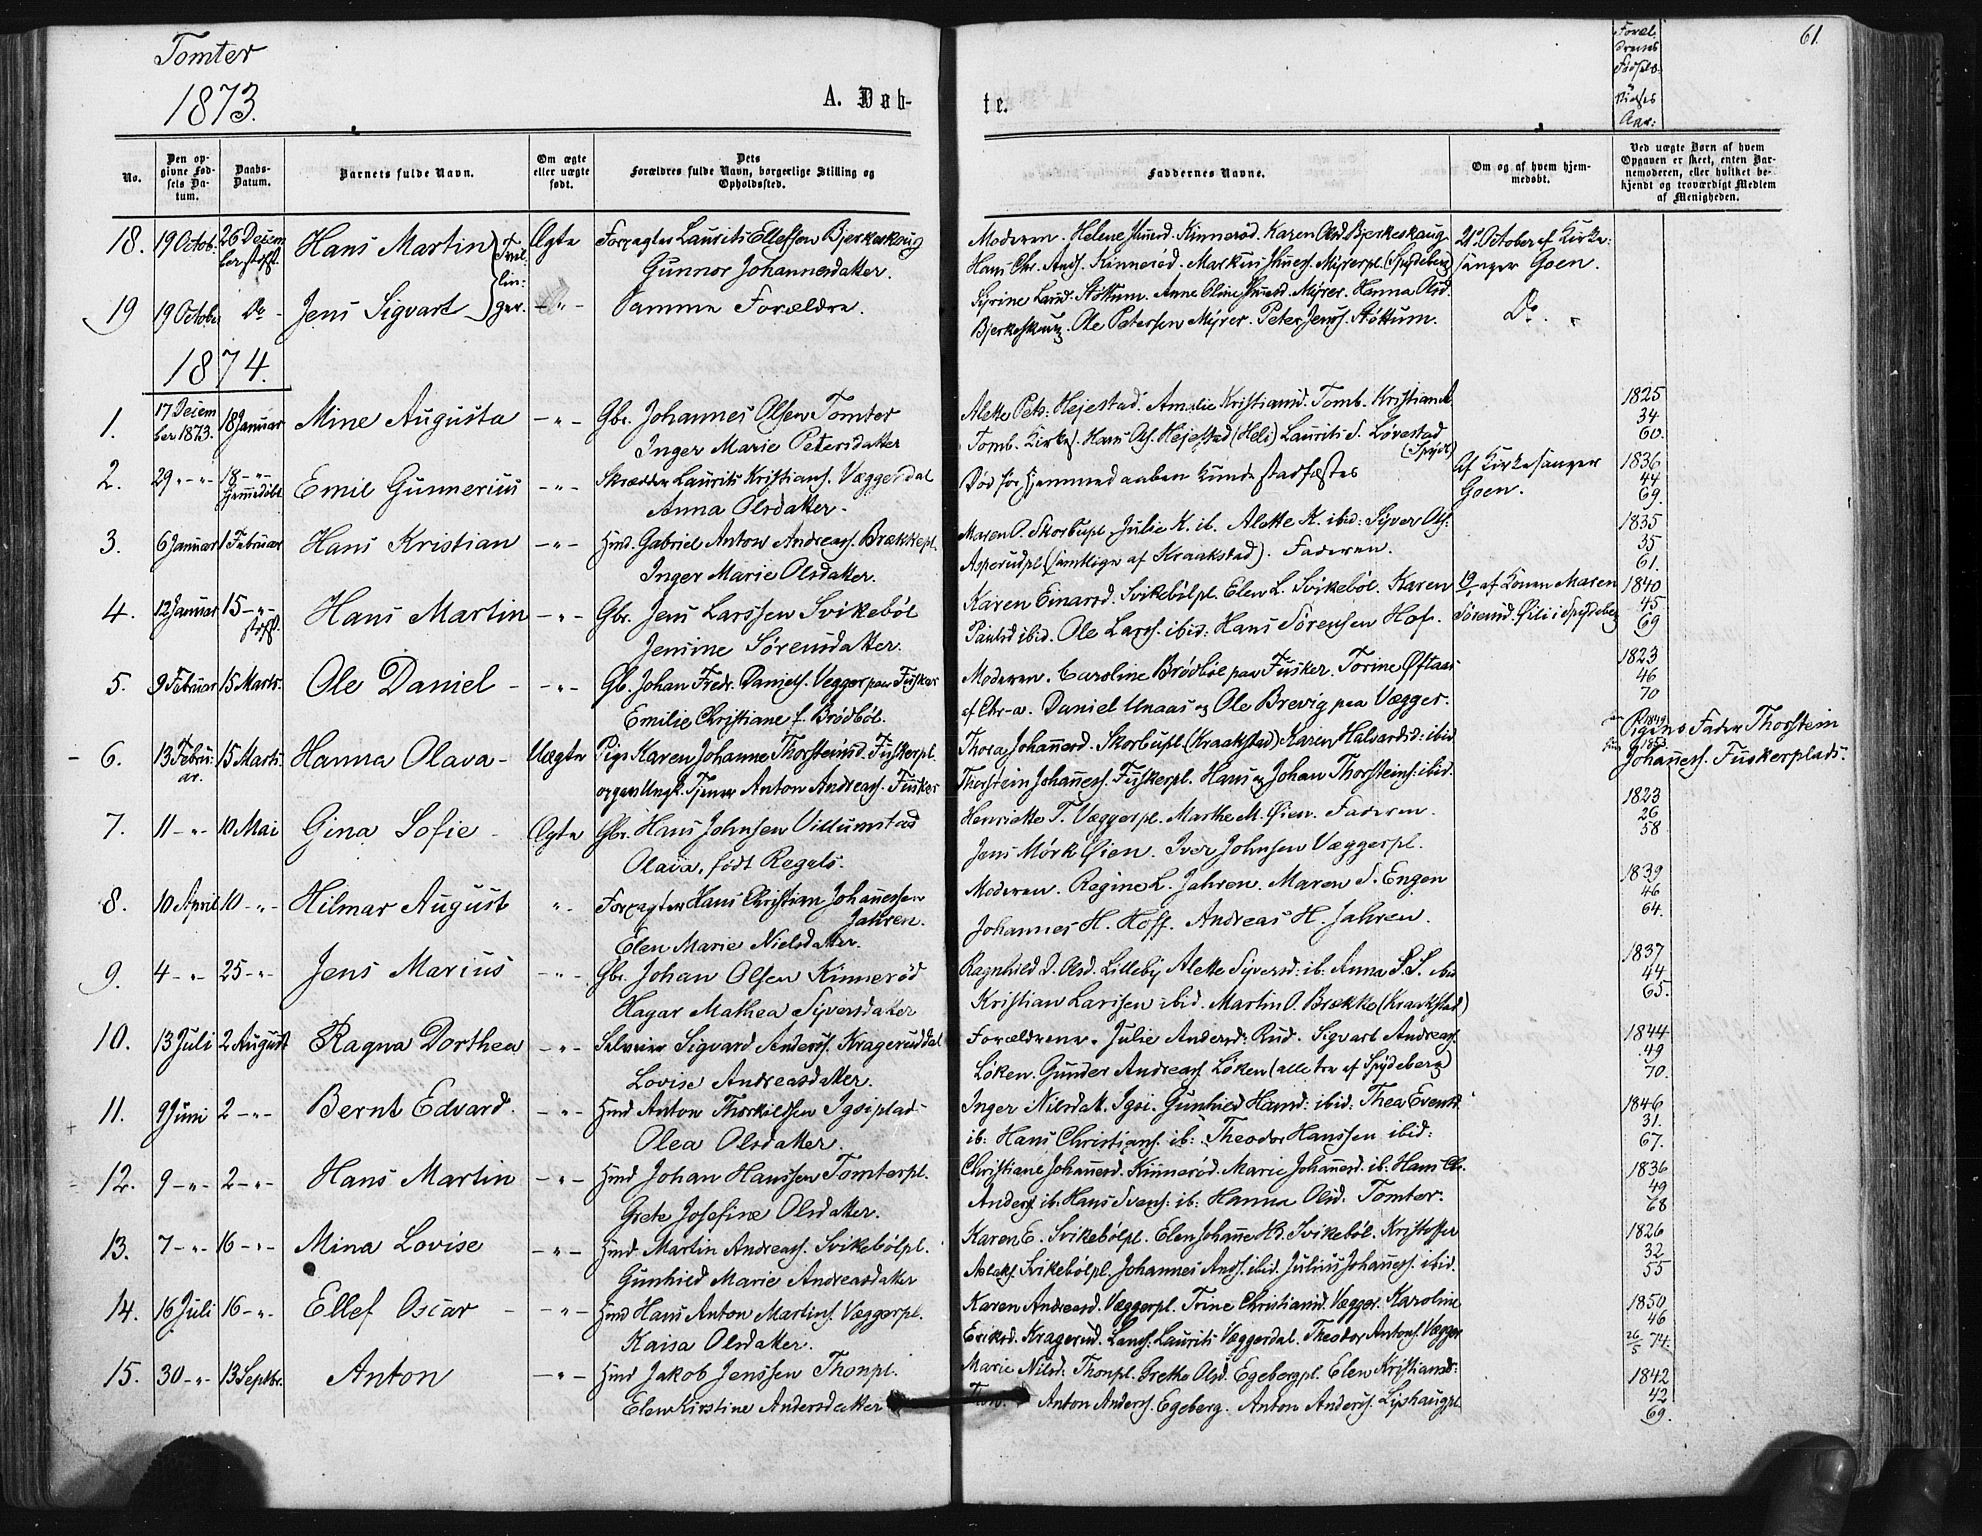 Tomter
1873.
A. Døb-
te.
61.
Foræl
drenes
Fødsels-
Aar:
No.
Den op-
givne Fød-
sels Da-
tum.
Daabs-
Datum.
Barnets fulde Navn.
Om ægte
eller uægte
født.
Dets
Forældres fulde Navn, borgerlige Stilling og
Opholdssted.
Faddernes Navne.
Om og af hvem hjem-
medøbt.
Ved uægte Børn af hvem
Opgaven er skeet, enten Bar-
nemoderen, eller hvilket be-
kjendt og troværdigt Medlem
af Menigheden.
18. 19 Octob. 26 Decem Hans Martin Ægte Forpagter Laurits Ellefsen Bjerkeskaug Moderen. Helene Kinnerød. Karen Olsd Bjerkeskaug 21de October af Kirke:
ber stfst. Tvil- Gunnor Johannesdatter. Hans Chr. Ands. Kinnerød. Markus Myrerpl. (Spydeberg) sanger Goen.
lin-
19 19 Octobe Do - Jens Sigvart ger. -"- Samme Forældre. Syrine Larsd. Støttum. Anne Oline Myrer. Hanna Olsd. Do.
Bjerkeskaug. Ole Petersen Myrer. Peter Jenss. Støttum.
1874.
1. 17 Decem 18 Januar Mine Augusta -"- Gbr. Johannes Olsen Tomter Alette Pets. Hejestad. Amalie Kristiansd. Tomb. Kristian A 1825
ber 1873. Inger Marie Petersdatter Tomb. Kirkes. Hans Hejestad (Heli) Laurits S. Løvestad 34
(Spyd) 60.
2. 29 -"- 18 -"- Emil Gunnerius -"- Skrædder Laurits Kristians. Væggerdal Død før Hjemmedaaben kunde stadfæstes Af Kirkesanger 1836
Hjemmedøbt Anna Olsdatter. Goen. 44
69.
3. 6 Januar 1 Februar Hans Kristian -"- Hmd. Gabriel Anton Andreass. Brækkepl. Maren O. Skorbupl. Julie K. ib. Alette K. ibid: Syver Ols: 1835
Inger Marie Olsdatter. Asperudpl (samtlige af Kraakstad). Faderen. 35
61.
4. 12 Januar 15 -"- Hans Martin -"- Gbr. Jens Larssen Svikebøl Karen Einarsd. Svikebølpl. Elen L. Svikebøl. Karen af Konen Maren 1840
stfst. Jensine Sørensdatter. Paulsd ibid. Ole Larss. ibid: Hans Sørensen Hof. Sørensd. Øili i Spydeberg 45
69
5. 9 Februar 15 Marts. Ole Daniel -"- Gb. Johan Fredr. Daniels. Vegger paa Fusker Moderen. Caroline Brødbøl paa Fusker. Torine Øftaas 1823
Emilie Christiane f. Brødbøl. af Chr-a. Daniel Unaas og Ole Brevig paa Vægger. 46
70
6. 13 Febru 15 Marts. Hanna Olava Uægte Pige Karen Johanne Thorsteinsd. Fuskerpl. Thora Johannesd. Skorbupl (Kraakstad) Karen Halvardsd: ibid Pigens Fader Thorstein
ar. og Ungk. Tjener Anton Andreass. Fusker Thorstein Johanness. Fuskerpl. Hans og Johan Thorsteins. ibid. Johanness. Fuskerplads.
7. 11 -"- 10 Mai Gina Sofie Ægte Gbr. Hans Johnsen Villumstad Henriette T. Væggerpl. Marthe M. Øien. Faderen. 1823
Olava, født Regels. Jens Mørk Øien. Iver Johnsen Væggerpl. 26
58
8. 10 April 10 -"- Hilmar August "- Forpagter Hans Christian Johannessen Moderen. Regine L. Jahren. Maren S. Engen 1839
Jahren. 46
Elen Marie Nielsdatter. Johannes H. Hoff. Andreas H. Jahren. 64.
9. 4 -"- 25 -"- Jens Marius -"- Gbr. Johan Olsen Kinnerød Ragnhild D. Olsd. Lilleby Alette Syversd: ib. Anna S. S. ibid 1837
Hagar Mathea Syversdatter Kristian Larssen ibid. Martin O. Brække (Kraakstad) 44
65.
10. 13 Juli 2 August Ragna Dorthea -"- Selveier Sigvard Anderss. Krageruddal Forældrene. Julie Andersd: Rud. Sigvart Andreass. 1844
Lovise Andreasdatter. Løken. Gunder Andreass Løken (alle tre af Spydeberg) 49
70.
11. 9 Juni 2 -"- Bernt Edvard. -"- Hmd Anton Thorkildsen Igsiplad Inger Nilsdat. Igsi. Gunhild Hansd: ibid: Thea Evensd. 1846
Olea Olsdatter. ib: Hans Christians. ib: Theodor Hanssen ibid: 31.
67.
12. 9 -"- 2 -"- Hans Martin -"- Hmd Johan Hanssen Tomterpl. Christiane Johannesd. Kinnerød. Marie Johannesd. ib. Hans Chr. 1836
Grete Josefine Olsdatter. Anders. ib. Hans Svens. ib: Hanna Olsd. Tomter. 49
68
13. 7 -"- 16 -"- Mina Lovise -"- Hmd. Martin Andreass. Svikebølpl. Karen E. Svikebølpl. Elen Johanne Hd. Svikebøl. Kristoffer 1826
Gunhild Marie Andreasdatter Aslaks. Svikebølpl. Johannes Ands. ibid. Julius Johanness. ibid. 32
55
14. 16 Juli 16 -"- Ellef Oscar -"- Hmd Hans Anton Martins. Væggerpl. Karen Andreasd. Væggerpl. Trine Christiansd. Vægger. Karoline 1850
Kaisa Olsdatter. Eriksd. Kragerud. Lauss. Laurits Væggerdal. Theodor Antons. Vægger 46
26/5 74.
15. 30 -"- 13 Septbr. Anton -"- Hmd Jakob Jenssen Thonpl. Marie Nilsd. Thonpl. Grethe Olsd. Egebergpl. Elen Kristiansd: 1842
Elen Kirstine Andersdatter Anton Anderss. Egeberg. Anton Anderss. Lishaugpl. 42
69.